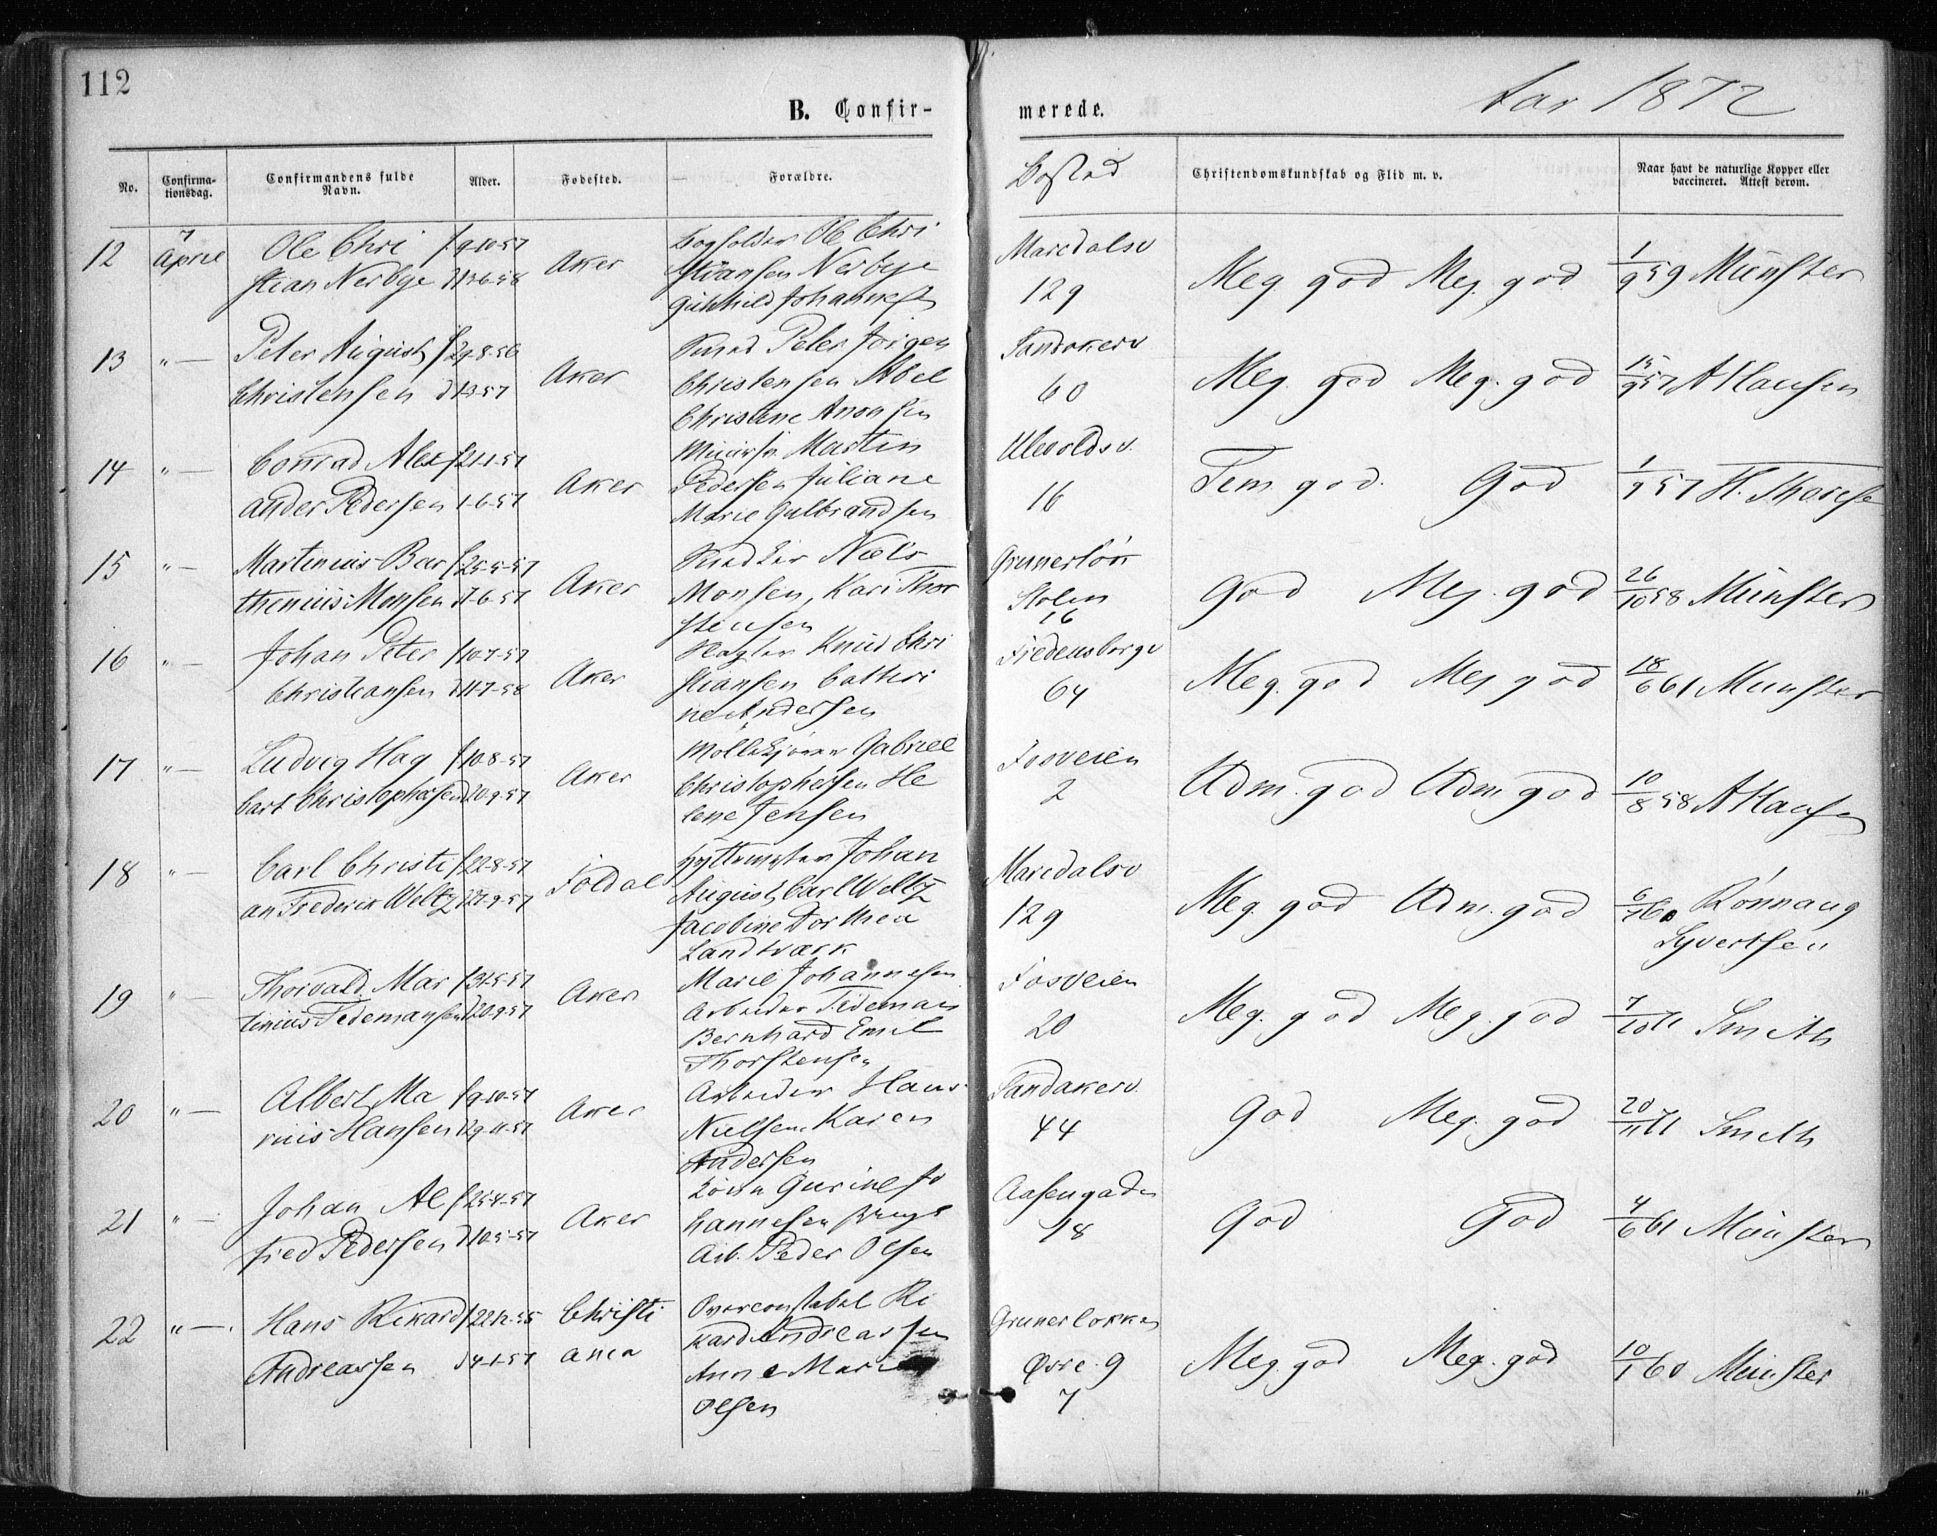 112
B. Confir-
merede.
Aar 1872
No.
Confirma-
tionsdag.
Confirmandens fulde
Navn.
Alder.
Fødested.
Forældre.
Bosted
Christendomskundskab og Flid m. v.
Naar havt de naturlige Kopper eller
vaccineret. Attest derom.
12
7
April
Ole Chri
stian Nerbye
f 9-10-57
d 13-6-58
Aker
Ole Chri
stiansen Nerbye
Gunhild
Maridalsv
129
Meg. god Meg. god
1/9 59 Münster
13
"—
Peter August
Christensen
f 29-8-56
d 1-3-57
Aker
Smed Peter Jörgen
Christensen Abel
Christine
Sandakerv
60
Meg. god Meg. god
15/9 57 A Hansen
14
"—
Conrad Alex
ander Pedersen
f 21-1-57
1-6-57
Aker
Martin
Pedersen Juliane
Marie Gulbrandsen
Ulevoldsv.
16
Tem. god. God
1/9 57 H.
15
"—
Martinius Bar
thenius Monsen
f 25-5-57
d 7-6-57
Aker
Niels
Monsen, Kari Thor
stensen
Grunerløk
16
God Meg. god
26/10 58 Münster
16
"—
Johan Peter
Christiansen
f 10-7-57
d 11-7-58
Aker
Knud Chri
stiansen Cathri
ne Andersen
Fredensborgv
64
Meg. god Meg god
18/6 61 Münster
17
"—
Ludvig Hag
bart Christophersen
f 10-8-57
d 20-9-57
Aker
Gabriel
Christophersen He
lene Jensen
Fosveien
2
Udm. god Udm. god
10/8 58 A Hansen
18
"—
Carl Christi
an Frederik Weltz
f 22-8-57
d 27-9-57
Foldal
Hyttemester Johan
August Carl Weltz
Jacobine Dorthea
Landmark
Maridalsv
129
Meg. god Udm. god
6/7 60 Rönnaug
Syvertsen
19
"—
Thorvald Mar
tinius Tidemansen
f 31-5-57
d 20-9-57
Aker
Marie Johannesen
Arbeider Tideman
Bernhard Emil
Thorstensen
Fosveien
20
Meg. god Meg. god
7/10 71 Smith
20
"—
Albert Ma
rius Hansen
f 9-10-57
d 29-11-57
Aker
Arbeider Hans
Nielsen. Karen
Andersen
Sandakerv.
44
God Meg. god
20/11 71 Smith
21
"—
Johan Al
fred Pedersen
f 25-4-57
d 10-5-57
Aker
Gurine Jo
hannesen
Arb. Peder Olsen
Aasengaden
18
God God
4/6 61 Münster
22
"—.
Hans Rikard
Andreassen
f 22-12-56
d 4-1-57
Christi
ania
Overconstabel Ri
kard Andreassen
Anne Marie
Olsen
Grunerlokken
Øvre. g
7
Meg. god Meg. god
10/1 60 Münster